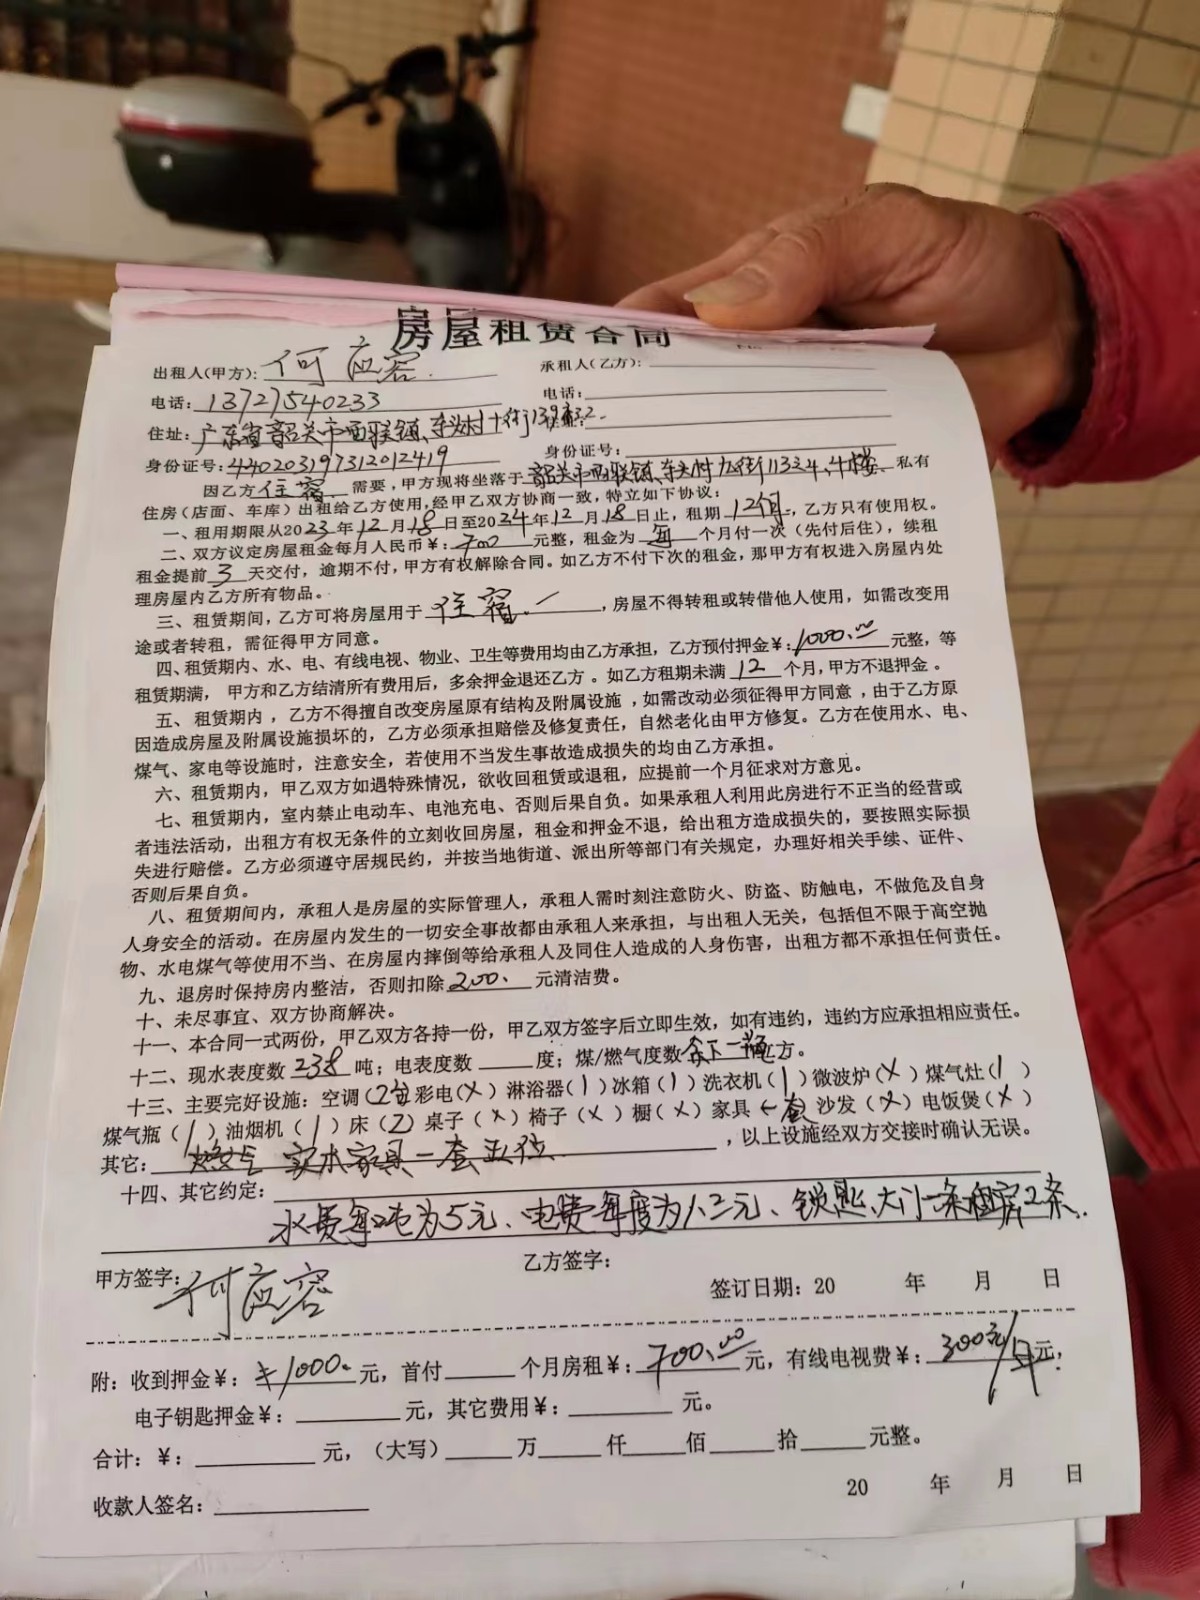 房屋租赁合同
出租人(甲方): 何应容 承租人(乙方):
电话: 13727540233 电话:
住址: 广东省韶关市西联镇、车头村十街139号
身份证号: 440203197312012419 身份证号:
因乙方 住宿 需要，甲方现将坐落于 韶关市西联镇、车头村九街113之4、4楼、私有
住房(店面、车库)出租给乙方使用,经甲乙双方协商一致，特立如下协议：
一、租用期限从2023年12月18日至2024年12月18日止，租期 12个月，乙方只有使用权。
二、双方议定房屋租金每月人民币¥: 700 元整，租金为 每 个月付一次（先付后住），续租
租金提前 3 天交付，逾期不付，甲方有权解除合同。如乙方不付下次的租金，那甲方有权进入房屋内处
理房屋内乙方所有物品。
三、租赁期间，乙方可将房屋用于 住宿 ，房屋不得转租或转借他人使用，如需改变用
途或者转租，需征得甲方同意。
四、租赁期内、水、电、有线电视、物业、卫生等费用均由乙方承担，乙方预付押金¥: 1000.00 元整，等
租赁期满， 甲方和乙方结清所有费用后，多余押金退还乙方 。如乙方租期未满 12 个月，甲方不退押金 。
五、 租赁期内 ，乙方不得擅自改变房屋原有结构及附属设施 ，如需改动必须征得甲方同意 ，由于乙方原
因造成房屋及附属设施损坏的，乙方必须承担赔偿及修复责任，自然老化由甲方修复。乙方在使用水、电、
煤气、家电等设施时，注意安全，若使用不当发生事故造成损失的均由乙方承担。
六、租赁期内，甲乙双方如遇特殊情况，欲收回租赁或退租，应提前一个月征求对方意见。
七、租赁期内，室内禁止电动车、电池充电、否则后果自负。如果承租人利用此房进行不正当的经营或
者违法活动，出租方有权无条件的立刻收回房屋，租金和押金不退，给出租方造成损失的，要按照实际损
失进行赔偿。乙方必须遵守居规民约，并按当地街道、派出所等部门有关规定，办理好相关手续、证件、
否则后果自负。
八、租赁期间内，承租人是房屋的实际管理人，承租人需时刻注意防火、防盗、防触电，不做危及自身
人身安全的活动。在房屋内发生的一切安全事故都由承租人来承担，与出租人无关，包括但不限于高空抛
物、水电煤气等使用不当、在房屋内摔倒等给承租人及同住人造成的人身伤害，出租方都不承担任何责任。
九、退房时保持房内整洁，否则扣除 200 元清洁费。
十、未尽事宜、双方协商解决。
十一、本合同一式两份，甲乙双方各持一份，甲乙双方签字后立即生效，如有违约，违约方应承担相应责任。
十二、现水表度数 238 吨；电表度数 度；煤/燃气度数 余下一瓶 立方。
十三、主要完好设施：空调（2台）彩电(×) 淋浴器(1) 冰箱(1) 洗衣机(1) 微波炉(×) 煤气灶(1)
煤气瓶（1）油烟机（1）床(2) 桌子(×) 椅子(×) 橱(×) 家具 一套 沙发(×) 电饭煲(×)
其它: 燃气 实木家具一套 ，以上设施经双方交接时确认无误。
十四、其它约定:
水费每吨为5元、电费每度为1.2元、锁匙、大门一条租房2条.
甲方签字: 何应容 乙方签字: 签订日期: 20 年 月 日
附: 收到押金¥: ¥1000. 元，首付 个月房租¥: 700.00 元，有线电视费¥: 300元/月元,
电子钥匙押金¥: 元，其它费用¥: 元。
合计: ¥: 元，（大写） 万 仟 佰 拾 元整。
收款人签名: 20 年 月 日